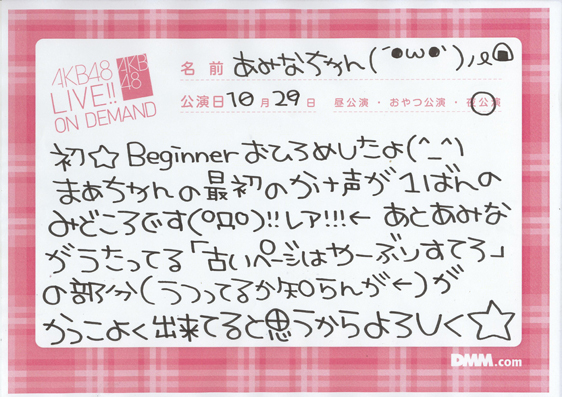 AKB48
LIVE!!
ON DEMAND
AKB
48
名前 あみなちゃん(´●ω●`)ノe🍙
公演日 10月29日 昼公演・おやつ公演・夜公演
初☆Beginnerおひろめしたよ(^_^)
まあちゃんの最初のかけ声が1ばんの
みどころです(ºДº)!!レア!!!← あとあみな
がうたってる「古いページはやーぶりすてろ」
の部分(うつってるか知らんが←)が
かっこよく出来てると思うからよろしく☆
DMM.com